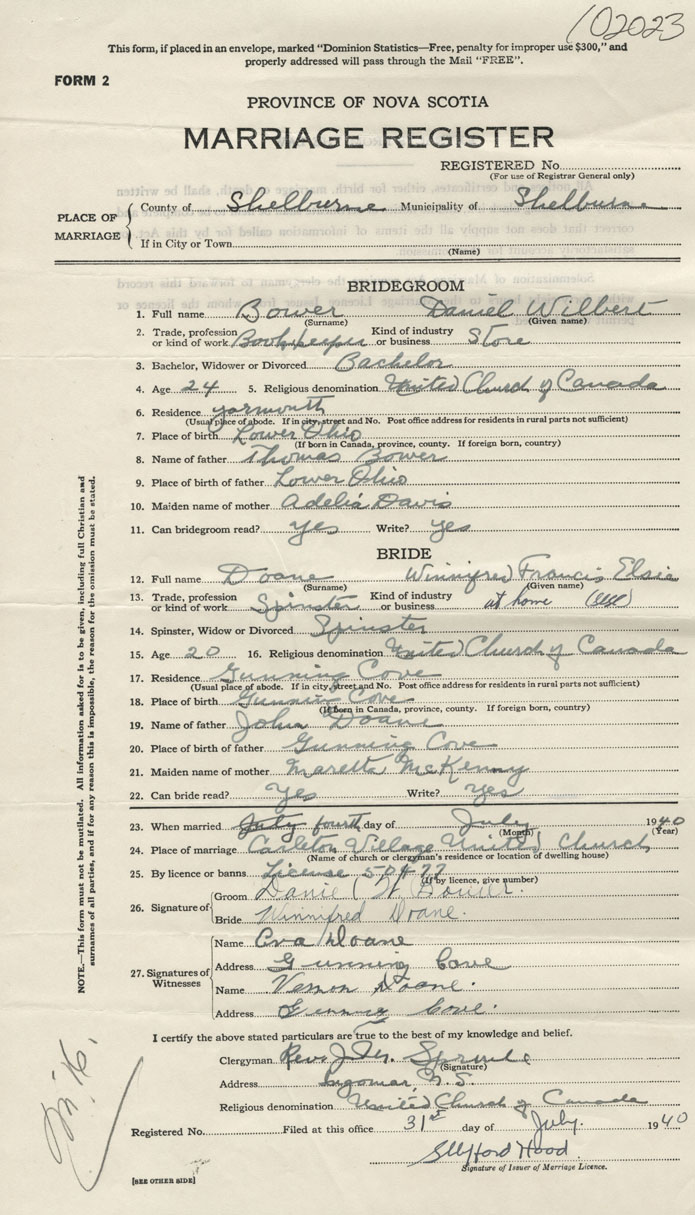 102023
This form, if placed in an envelope, marked "Dominion Statistics—Free, penalty for improper use $300," and
properly addressed will pass through the Mail "FREE".
FORM 2
PROVINCE OF NOVA SCOTIA
MARRIAGE REGISTER
REGISTERED No.
(For use of Registrar General only)
PLACE OF MARRIAGE
County of Shelburne Municipality of Shelburne
If in City or Town
(Name)
BRIDEGROOM
1. Full name Bower Daniel Wilbert
(Surname) (Given name)
2. Trade, profession or kind of work Bookkeeper Kind of industry or business Store
3. Bachelor, Widower or Divorced Bachelor
4. Age 24 5. Religious denomination United Church of Canada
6. Residence Yarmouth
(Usual place of abode. If in city, street and No. Post office address for residents in rural parts not sufficient)
7. Place of birth Lower Ohio
(If born in Canada, province, county. If foreign born, country)
8. Name of father Thomas Bower
9. Place of birth of father Lower Ohio
10. Maiden name of mother Adelia Davis
11. Can bridegroom read? yes Write? yes
BRIDE
12. Full name Doane Winnifred Francis Elsie
(Surname) (Given name)
13. Trade, profession or kind of work Spinster Kind of industry or business at home
14. Spinster, Widow or Divorced Spinster
15. Age 20 16. Religious denomination United Church of Canada
17. Residence Gunning Cove
(Usual place of abode. If in city, street and No. Post office address for residents in rural parts not sufficient)
18. Place of birth Gunning Cove
(If born in Canada, province, county. If foreign born, country)
19. Name of father John Doane
20. Place of birth of father Gunning Cove
21. Maiden name of mother Maretta McKenny
22. Can bride read? Yes Write? Yes
23. When married July fourth day of July 1940
(Month) (Year)
24. Place of marriage Carleton Village United Church
(Name of church or clergyman's residence or location of dwelling house)
25. By licence or banns License
(If by licence, give number)
26. Signature of
Groom Daniel W Bower.
Bride Winnifred Doane.
27. Signatures of Witnesses
Name Eva Doane
Address Gunning Cove
Name Vernon Doane.
Address Gunning Cove.
I certify the above stated particulars are true to the best of my knowledge and belief.
Clergyman Rev. Sproule
(Signature)
Address Ingomar, N.S.
Religious denomination United Church of Canada
Registered No. Filed at this office 31st day of July. 1940
Hood
Signature of Issuer of Marriage Licence.
[SEE OTHER SIDE]
NOTE.—This form must not be mutilated. All information asked for is to be given, including full Christian and
surnames of all parties, and if for any reason this is impossible, the reason for the omission must be stated.